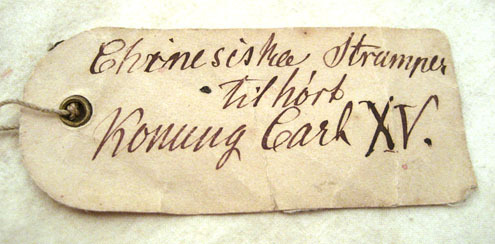 Chinesiska Strumper
tilhört
Konung Carl XV.